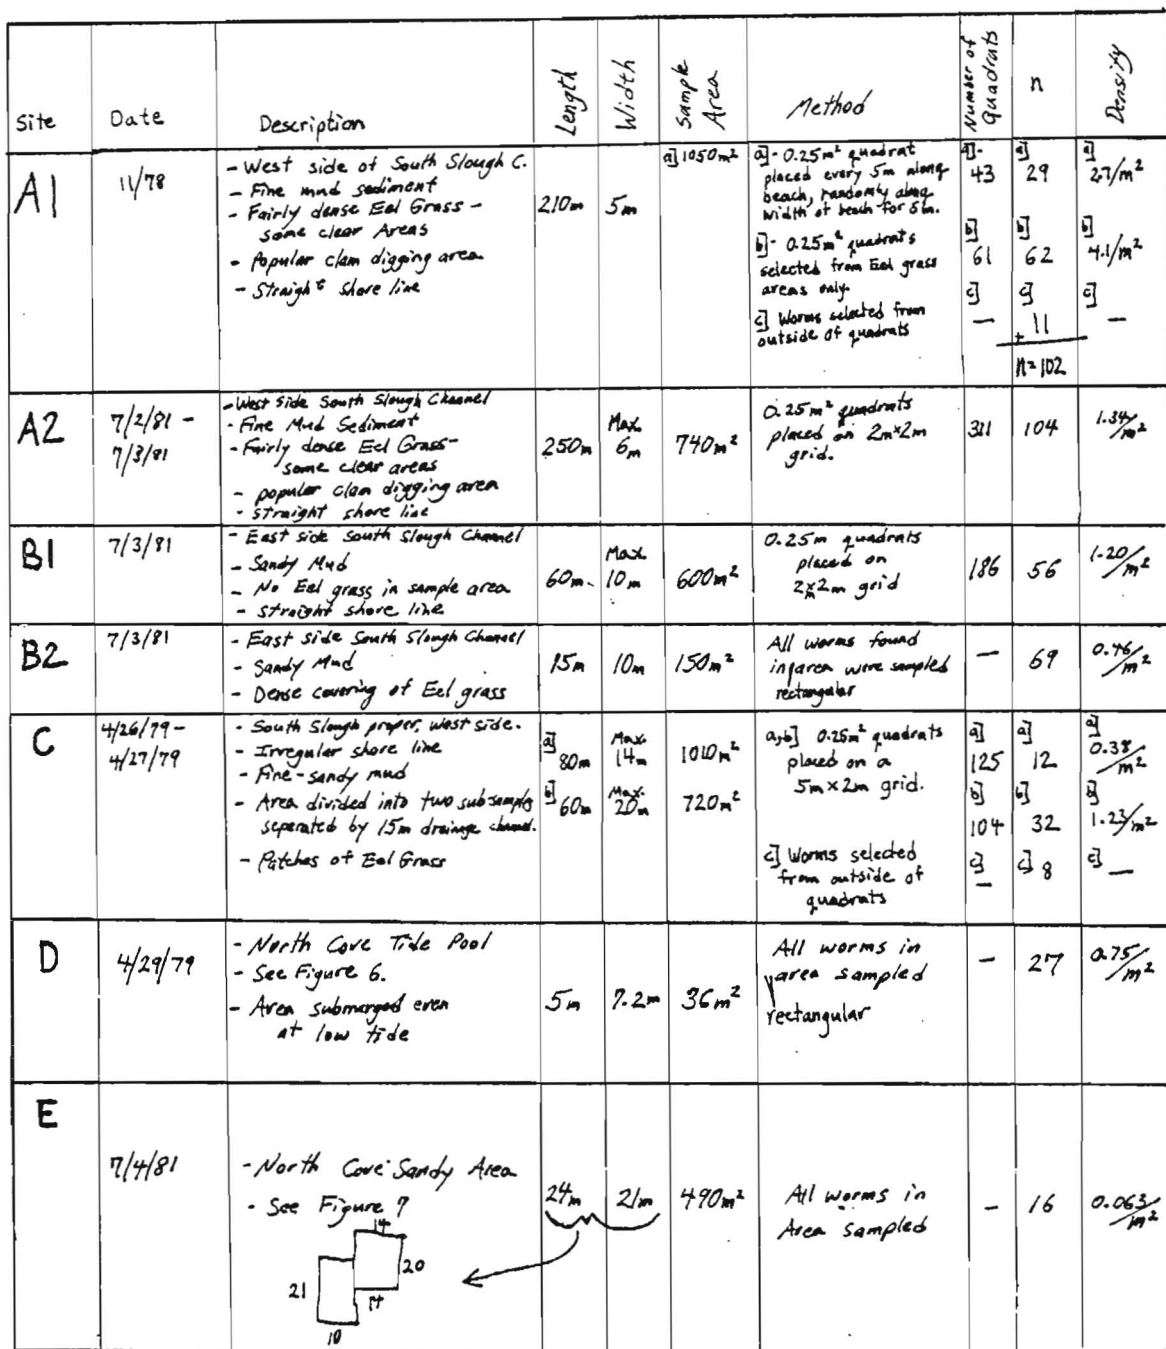 Site Date Description Length Width Sample Area Method Number of Quadrats n Density
A1
11/78
- West side of South Slough C.
- Fine mud sediment
- Fairly dense Eel Grass -
some clear Areas
- Popular clam digging area
- Straight shore line
210m
5m
a] 1050m²
a] - 0.25m² quadrat
placed every 5m along
beach, randomly along
width of beach for 5m.
b] - 0.25m² quadrats
selected from Eel grass
areas only.
c] Worms selected from
outside of quadrats
a] -
43
b]
61
c]
—
a]
29
b]
62
c]
+ 11
n=102
a]
2.7/m²
b]
4.1/m²
c]
—
A2
7/2/81 -
7/3/81
- West side South Slough Channel
- Fine Mud Sediment
- Fairly dense Eel Grass -
some clear areas
- popular clam digging area
- straight shore line
250m
Max.
6m
740m²
0.25m² quadrats
placed on 2m×2m
grid.
311
104
1.34/m²
B1
7/3/81
- East side South Slough Channel
- Sandy Mud
- No Eel grass in sample area
- straight shore line
60m
Max.
10m
600m²
0.25m quadrats
placed on
2m×2m grid
186
56
1.20/m²
B2
7/3/81
- East side South Slough Channel
- Sandy Mud
- Dense covering of Eel grass
15m
10m
150m²
All worms found
in area were sampled
rectangular
—
69
0.46/m²
C
4/26/79 -
4/27/79
- South Slough proper, west side.
- Irregular shore line
- Fine-sandy mud
- Area divided into two subsamples
seperated by 15m drainage channel.
- Patches of Eel Grass
a]
80m
b] 60m
Max.
14m
Max.
20m
1010m²
720m²
a,b] 0.25m² quadrats
placed on a
5m×2m grid.
c] Worms selected
from outside of
quadrats
a]
125
b]
104
c]
—
a]
12
b]
32
c] 8
a]
0.38/m²
b]
1.23/m²
c] —
D
4/29/79
- North Cove Tide Pool
- See Figure 6.
- Area submerged even
at low tide
5m
7.2m
36m²
All worms in
area sampled
rectangular
-
27
0.75/m²
E
7/4/81
- North Cove Sandy Area
- See Figure 7
14
20
21
14
10
24m
21m
490m²
All worms in
Area sampled
-
16
0.063/m²